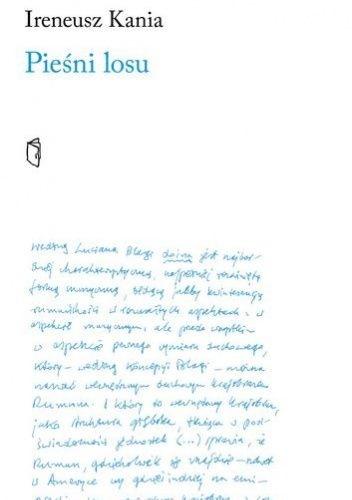 Ireneusz Kania
Pieśni losu
Według Luciana Blagi doina jest najbar-
dziej charakterystyczną, najpełniej rozwiniętą
formą muzyczną, będącą jakby kwintesencją
rumuńskości w rozmaitych aspektach: w
aspekcie muzycznym, ale przede wszystkim
w aspekcie pewnego wymiaru duchowego,
który – według koncepcji Blagi – można
nazwać wewnętrznym duchowym krajobrazem
Rumuna. I który to wewnętrzny krajobraz,
jako struktura głęboka, tkwiąca w pod-
świadomości jednostek (...) sprawia, że
Rumun, gdziekolwiek się znajdzie – nawet
w Ameryce czy gdzieś indziej na emi-